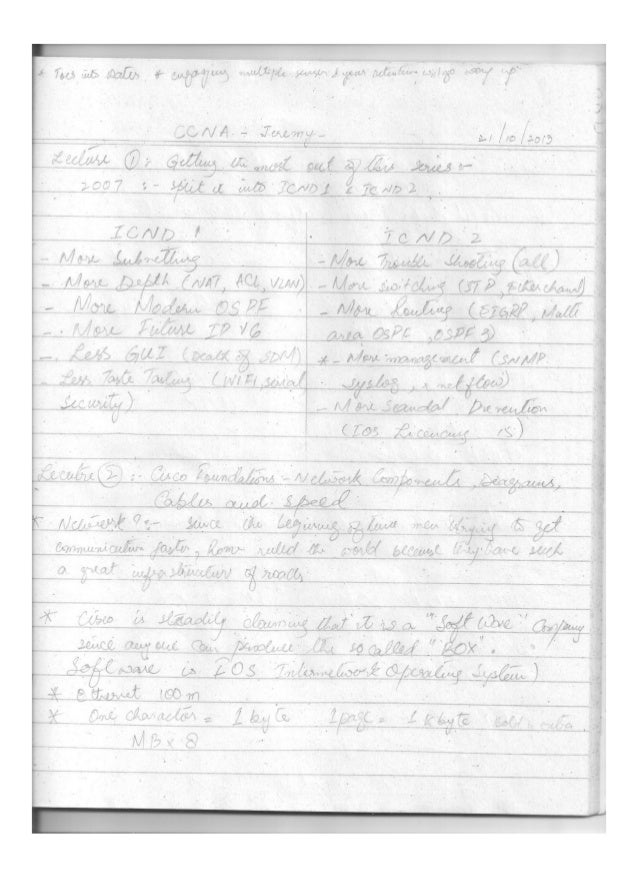 * Toes into Water * engaging multiple senses & your attention will go way up
CCNA - Jeremy -
21/10/2013
Lecture ①: Getting the most out of this series :-
2007 :- split it into ICND1 & ICND2
ICND 1
- More Subnetting
- More Depth (NAT, ACL, VLAN)
- More Modern OSPF
- More Future IP V6
- Less GUI (Death of SDM)
- Less Taste Tasting (WIFI, serial
security)
ICND 2
- More Trouble Shooting (all)
- More switching (STP, etherchannel)
- More Routing (EIGRP, Multi
area OSPF, OSPF 3)
* - More management (SNMP
syslog, netflow)
- More Scandal Prevention
(IOS Licencing 15)
Lecutre ② :- Cisco Foundations - Network Components, Diagrams,
Cables and speed
* Network ? :- since the begining of time men trying to get
communication faster, Rome rulled the world because they have such
a great infrastructure of roads
* Cisco is steadily claiming that it is a "Soft Ware" Company
since anyone can produce the so called "BOX".
Software is IOS Internetwork Operating System)
* Ethernet 100 m
* One character = 1 byte 1 page = 1 k byte
MB x 8